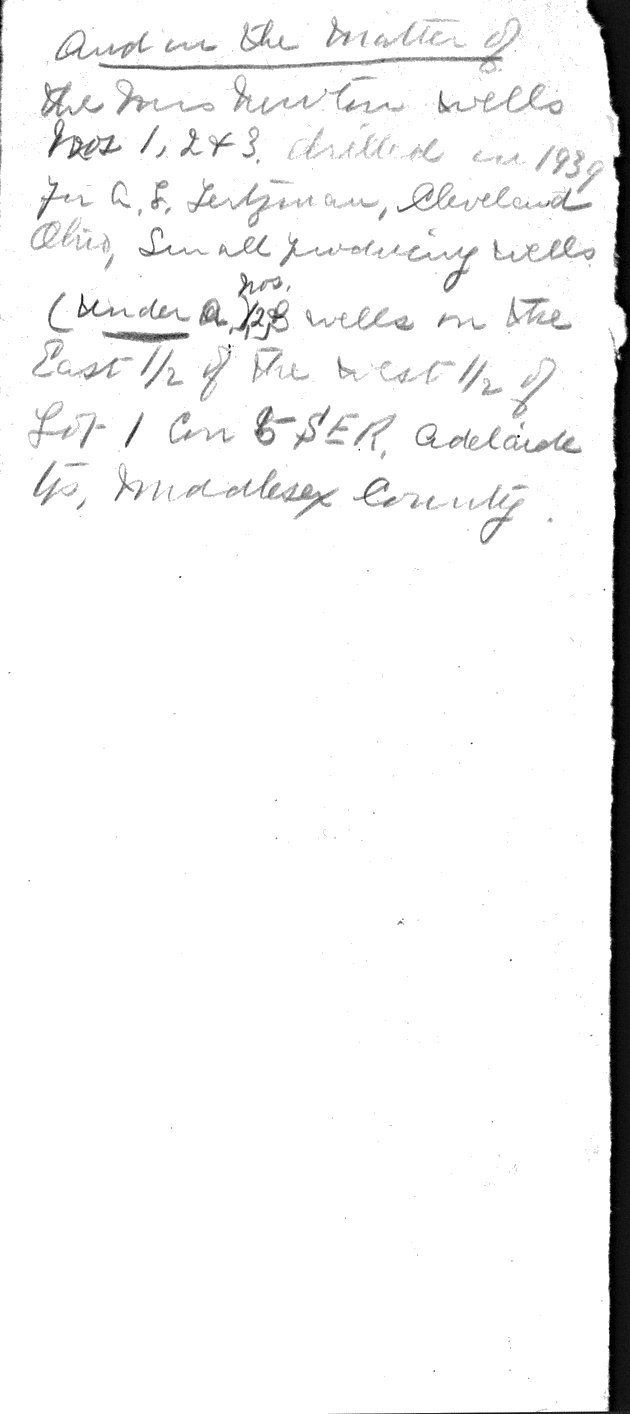 And in the Matter of
the Mrs Newton wells
Nos 1, 2 & 3. drilled in 1939
for A. L. Lertzman, Cleveland
Ohio, Small producing wells.
nos.
(Under A, 1,2,3 wells on the
East 1/2 of the West 1/2 of
Lot 1 Con 5 SER, Adelaide
Tp, Middlesex County.